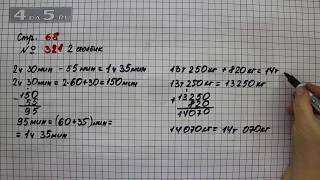 4DA5.RU
Стр. 68
№ 321 2 столбик
2ч 30мин - 55мин = 1ч 35мин
2ч 30мин = 2·60+30=150мин
150
- 55
95
95мин = (60+35)мин=
= 1ч 35мин
13т 250кг + 820кг = 14т
13т 250кг = 13250кг
+ 13250
820
14070
14070кг = 14т 070кг